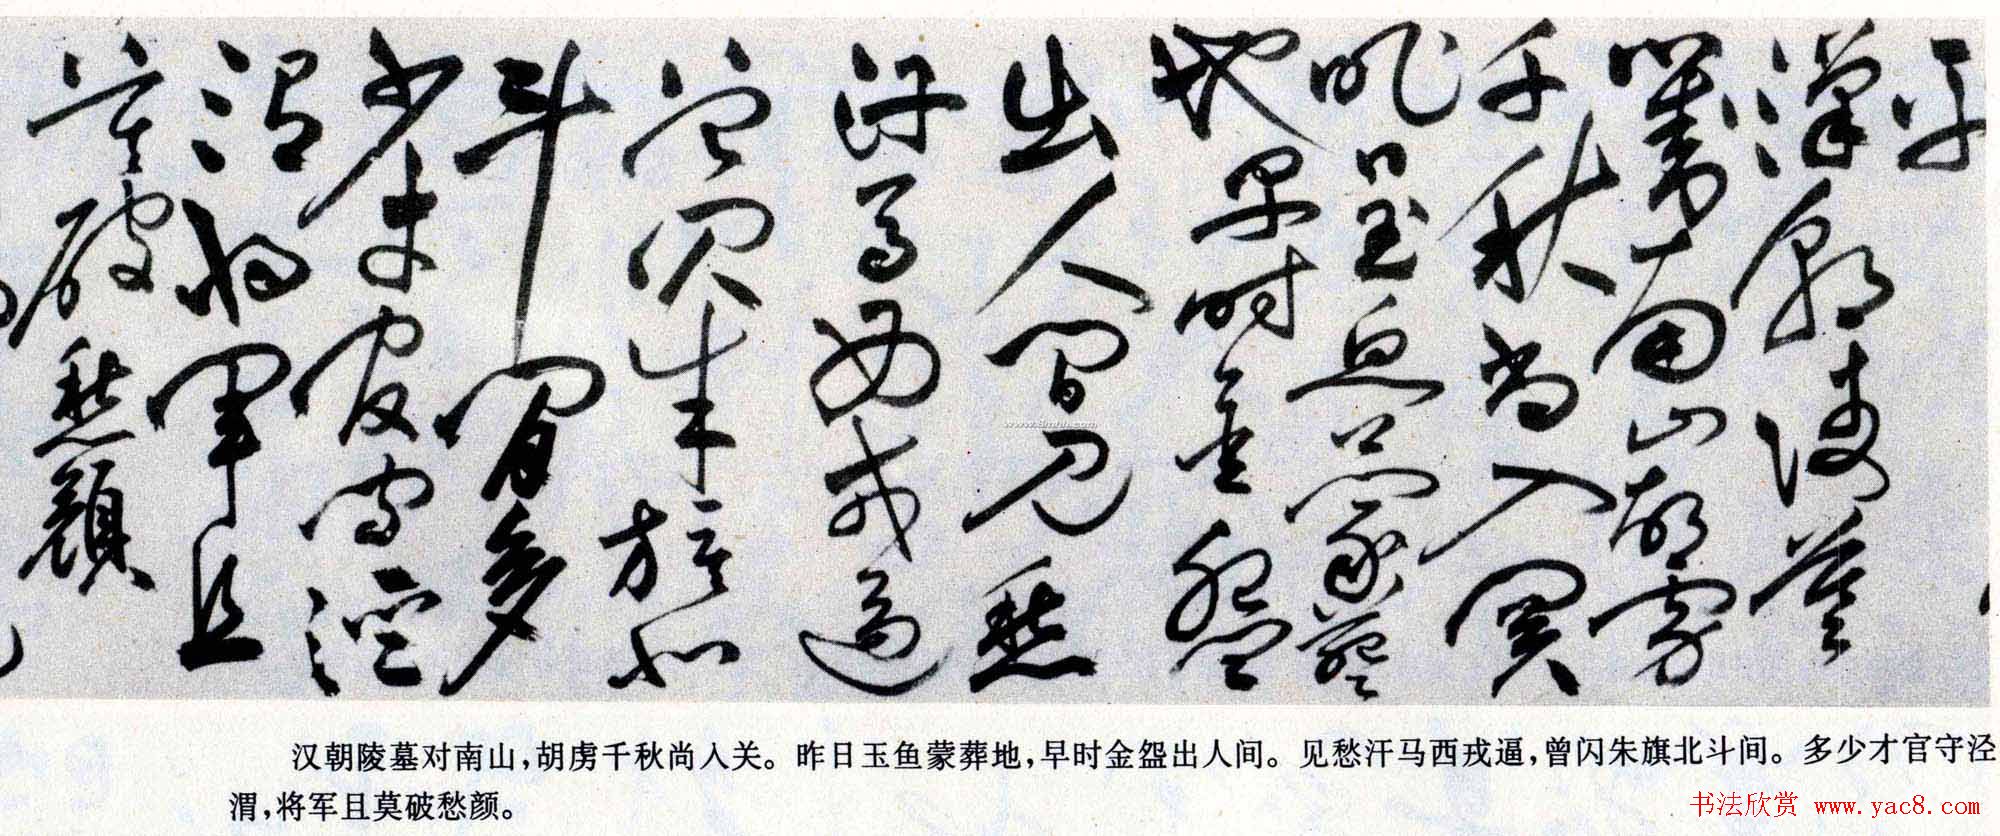 漢朝陵墓
對南山胡虜
千秋尚入關
昨日玉魚蒙葬
地早時金盌
出人間見愁
汗馬西戎逼
曾閃朱旗北
斗間多
少才官守涇
渭將軍且
莫破愁顏
汉朝陵墓对南山，胡虏千秋尚入关。昨日玉鱼蒙葬地，早时金盌出人间。见愁汗马西戎逼，曾闪朱旗北斗间。多少才官守泾
渭，将军且莫破愁颜。
书法欣赏 www.yac8.com